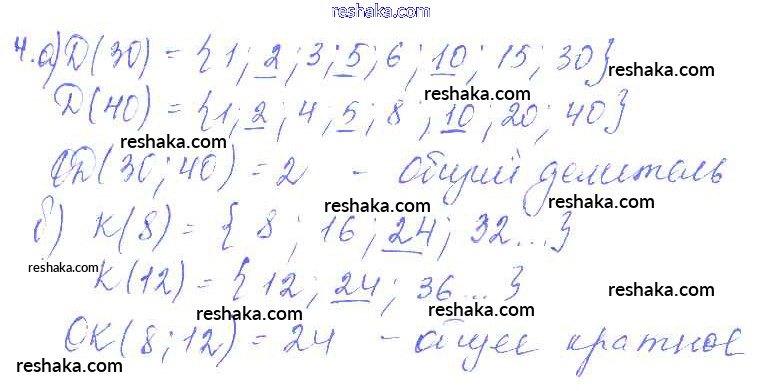 reshaka.com
4. а) Д(30) = {1; 2; 3; 5; 6; 10; 15; 30}
reshaka.com
reshaka.com
Д(40) = {1; 2; 4; 5; 8; 10; 20; 40}
reshaka.com
reshaka.com
ОД(30; 40) = 2 - общий делитель
reshaka.com
reshaka.com
б) К(8) = { 8 ; 16 ; 24 ; 32...}
reshaka.com
К(12) = {12 ; 24 ; 36...}
reshaka.com
reshaka.com
ОК(8; 12) = 24 - общее кратное
reshaka.com
reshaka.com